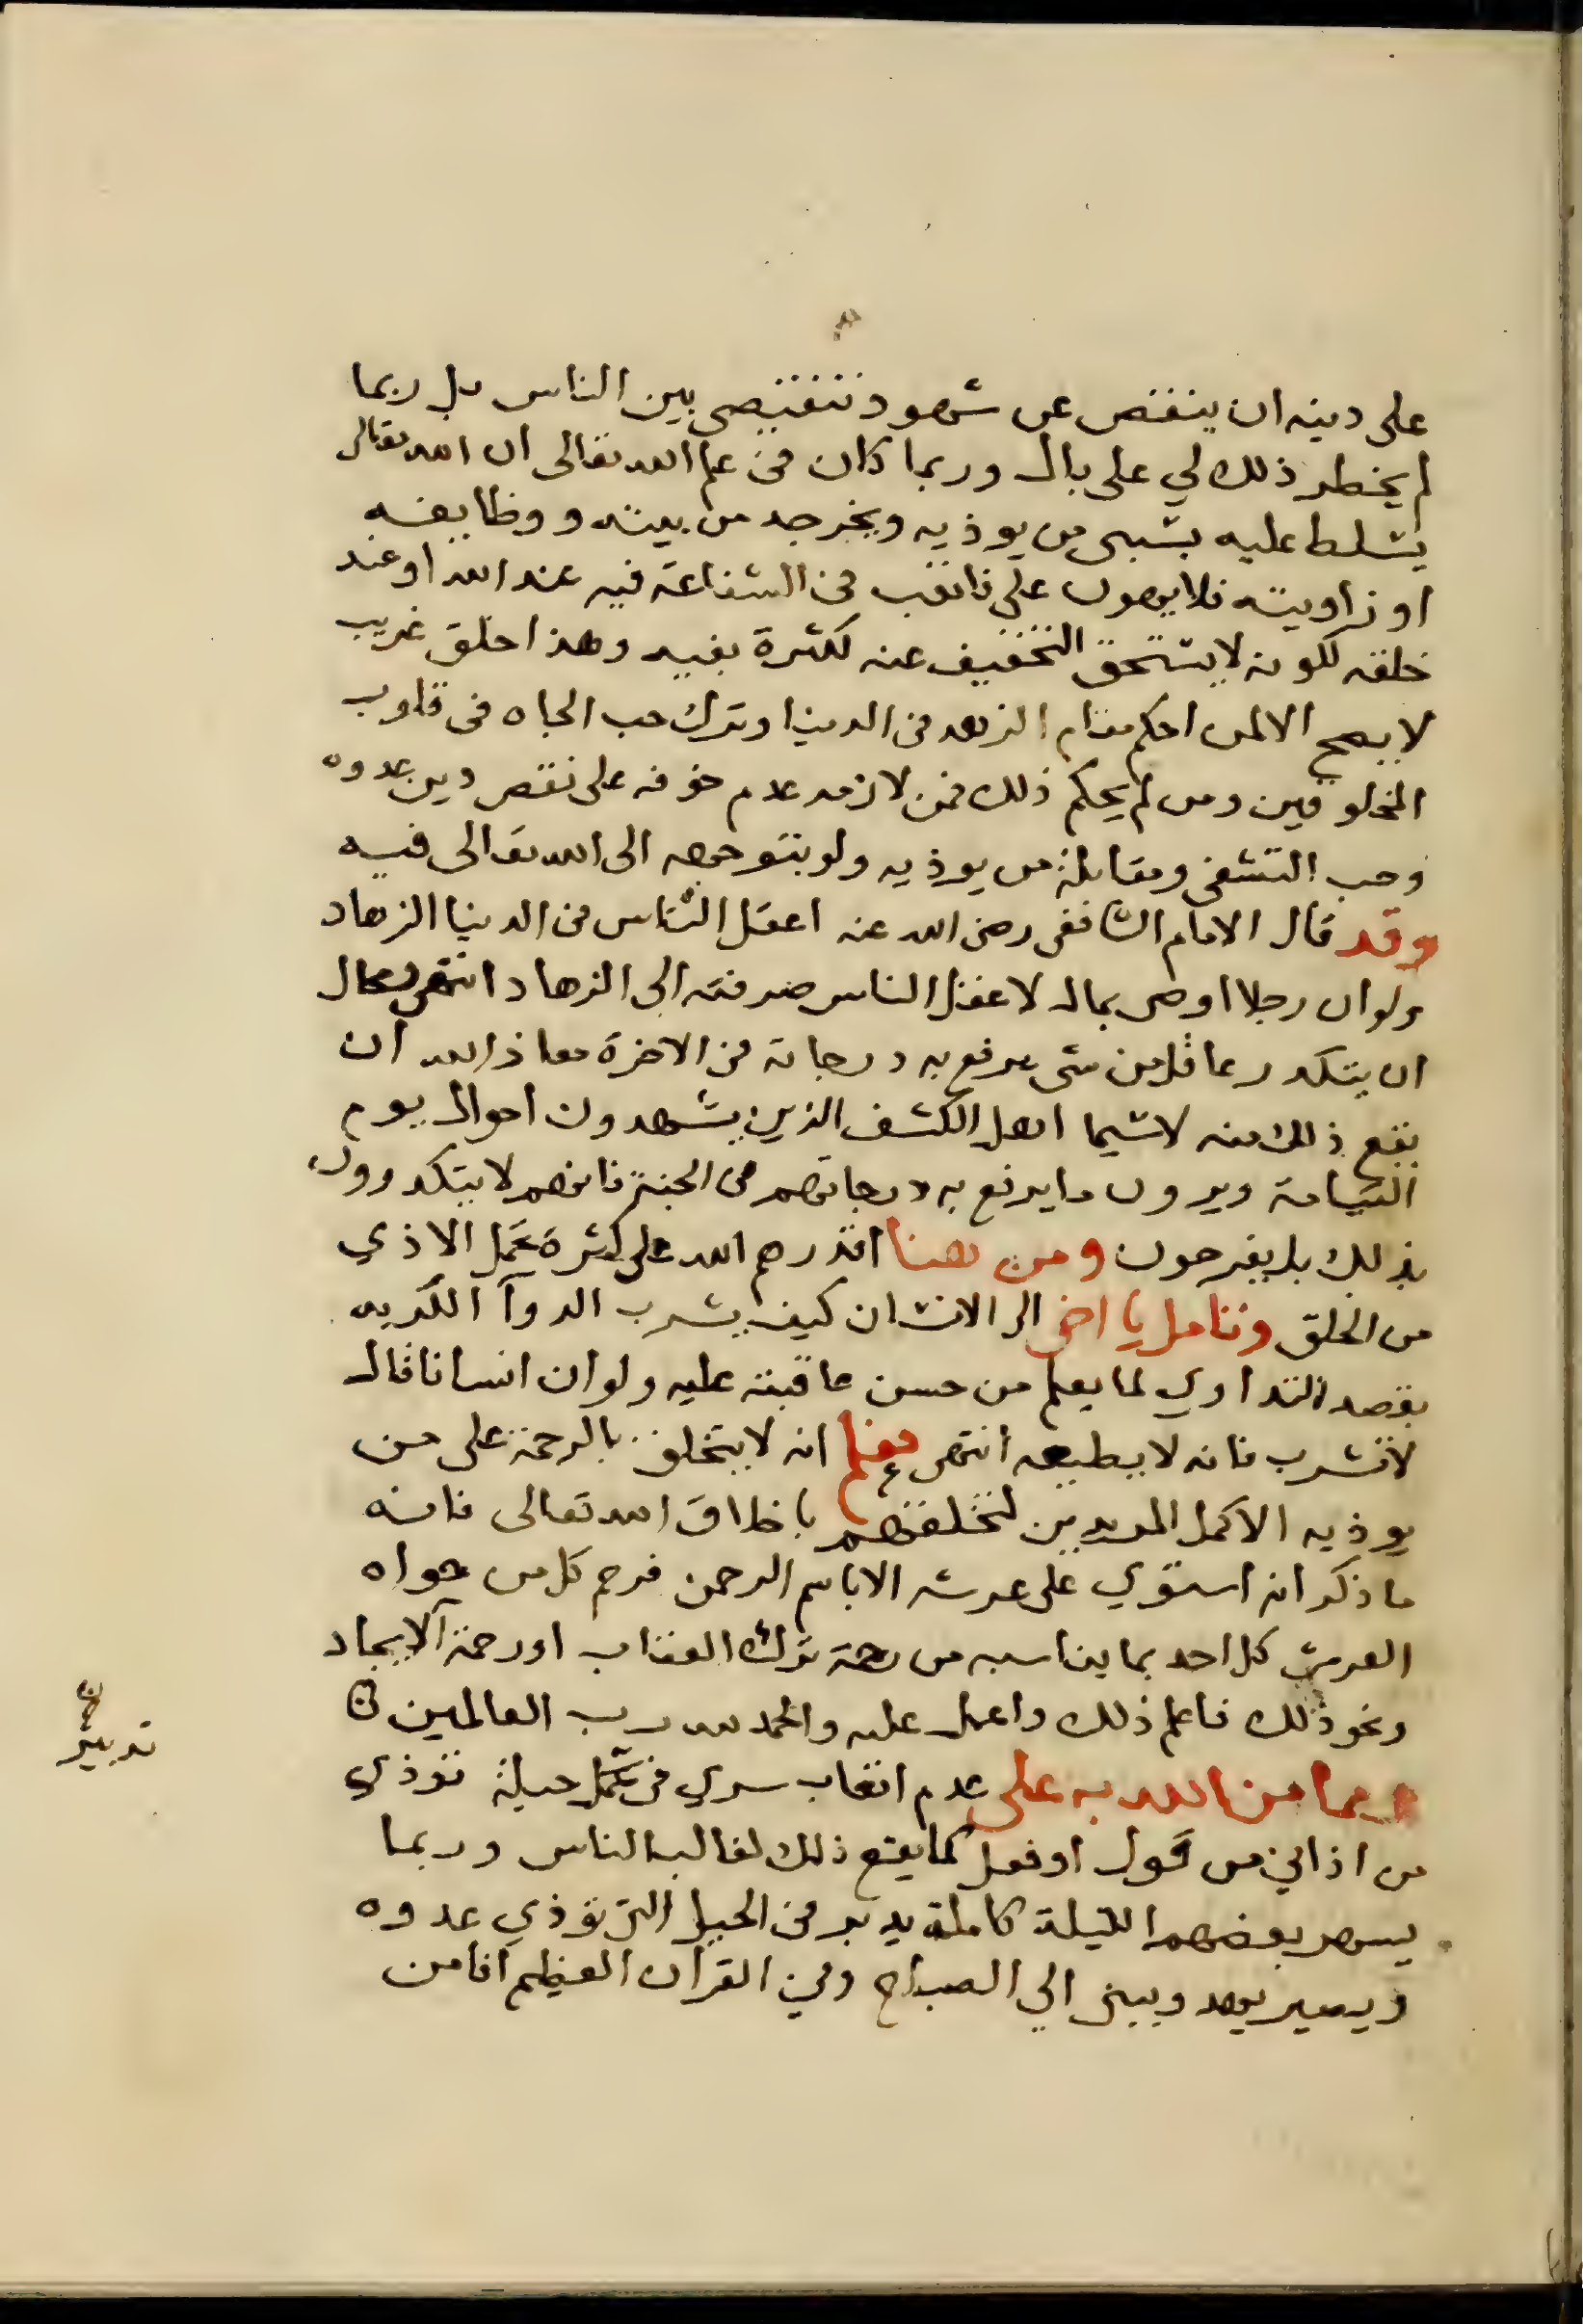 على دينه ان ينقص عن شهود تنقيصى بين الناس بل ربما
لم يخطر ذلك لي على بال وربما كان في علم الله تعالى ان الله تعالى
يسلط عليه بشىء من يوذيه ويخرجه من بيته ووظايفه
او زاويته فلا يعولون على فاتعب في الشفاعة فيه عند الله او عند
خلقه لكونه لا يستحق التخفيف عنه لكثرة بغيه وهذا خلق غريب
لا يصح الا لمن احكم مقام الزهد في الدنيا وترك حب الجاه في قلوب
المخلوقين ومن لم يحكم ذلك فمن لازمه عدم خوفه على نقص دين عدوه
وحب التشفى ومقابلة من يوذيه ولو بتوجهه الى الله تعالى فيه
وقد قال الامام الشافعى رضى الله عنه اعقل الناس في الدنيا الزهاد
ولو ان رجلا اوصى بمال لاعقل الناس صرفته الى الزهاد انتهى ومحال
ان يتكدر عاقل من شى يرفع به درجاته في الاخرة معاذ الله ان
يقع ذلك منه لا سيما اهل الكشف الذين يشهدون احوال يوم
القيامة ويرون ما يرفع به درجاتهم في الجنة فانهم لا يتكدرون
بذلك بل يفرحون ومن هنا اقدرهم الله على كثرة تحمل الاذي
من الخلق وتامل يا اخى الى الانسان كيف يشرب الدوآ الكريه
بقصد التداوي لما يعلم من حسن عاقبته عليه ولو ان انسانا قال
لا تشرب فانه لا يطيعه انتهى فعلم انه لا يتخلق بالرحمة على من
يوذيه الا كمل المريدين لتخلقهم باخلاق الله تعالى فانه
ما ذكر انه استوي على عرشه الا باسم الرحمن فرحم كل من حواه
العرش كل احد بما يناسبه من رحمة ترك العقاب او رحمة الايجاد
ونحو ذلك فاعلم ذلك واعمل عليه والحمد لله رب العالمين
ومما من الله به على عدم اتعاب سري في تحمل حيلة توذي
تدبير
من اذاني من قول او فعل كما يقع ذلك لغالب الناس وربما
يسهر بعضهم الليلة كاملة يدبر في الحيل التى توذي عدوه
ويصير يهد ويبنى الي الصباح وفي القرآن العظيم افامن